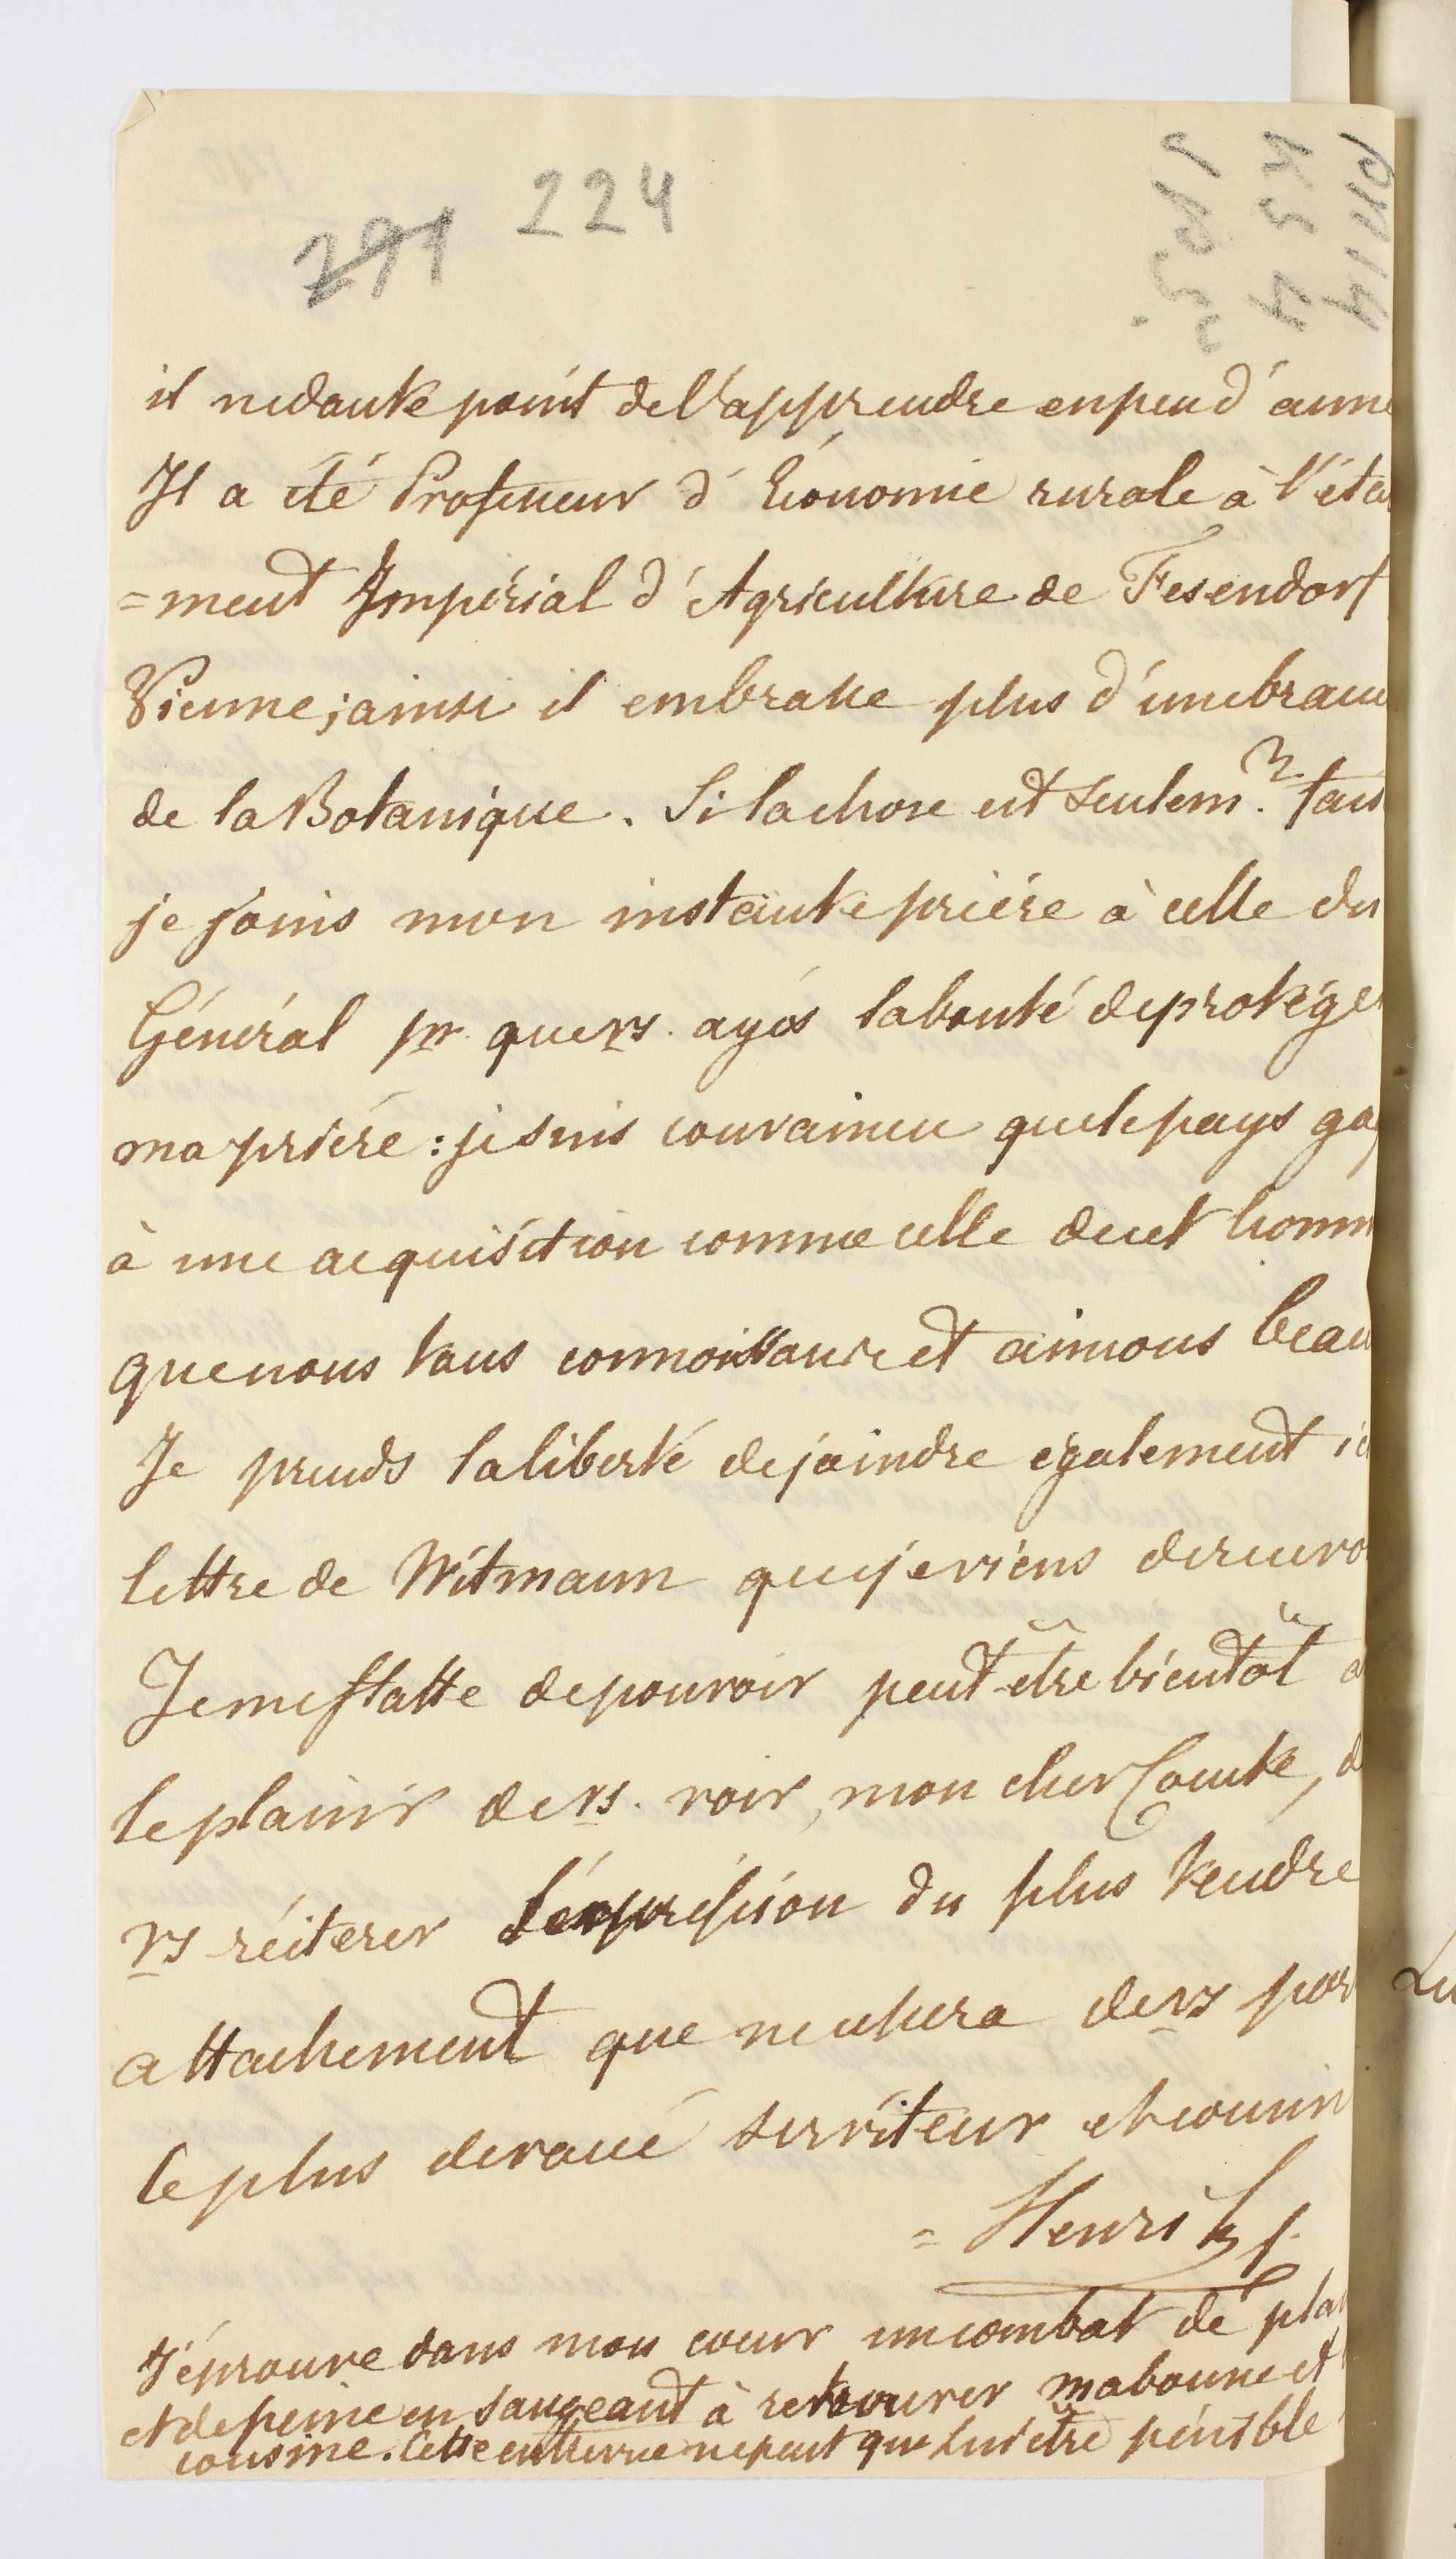 291 224
il ne doute point de l'apprendre en peu d'anné
Il a été Professeur d'Économie rurale à l'éta
=ment Impérial d'Agriculture de Fesendorf
Vienne; ainsi il embrasse plus d'une bran
de la Botanique. Si la chose est seulem.t fais
je joins mon instante priére à celle du
Général pr. que vs. ayés la bonté de protéger
ma priére: je suis convaincu que le pays ga
à une acquisition comme celle de cet homm
que nous tous connoissons et aimons beau
Je prends la liberté de joindre également ic
lettre de Witmann que je viens de recevo
Je me flatte de pouvoir peut-être bientôt a
le plaisir de vs. voir, mon cher Comte, d
vs réiterer l'expréssion du plus tendre
attachement que ne cessera de vs por
le plus devoué serviteur et cousin
= Henri
J'éprouve dans mon coeur un combat de pla
et de peine en songeant à retrouver ma bonne et
cousine. Cette entrevue ne peut que lui être pénible